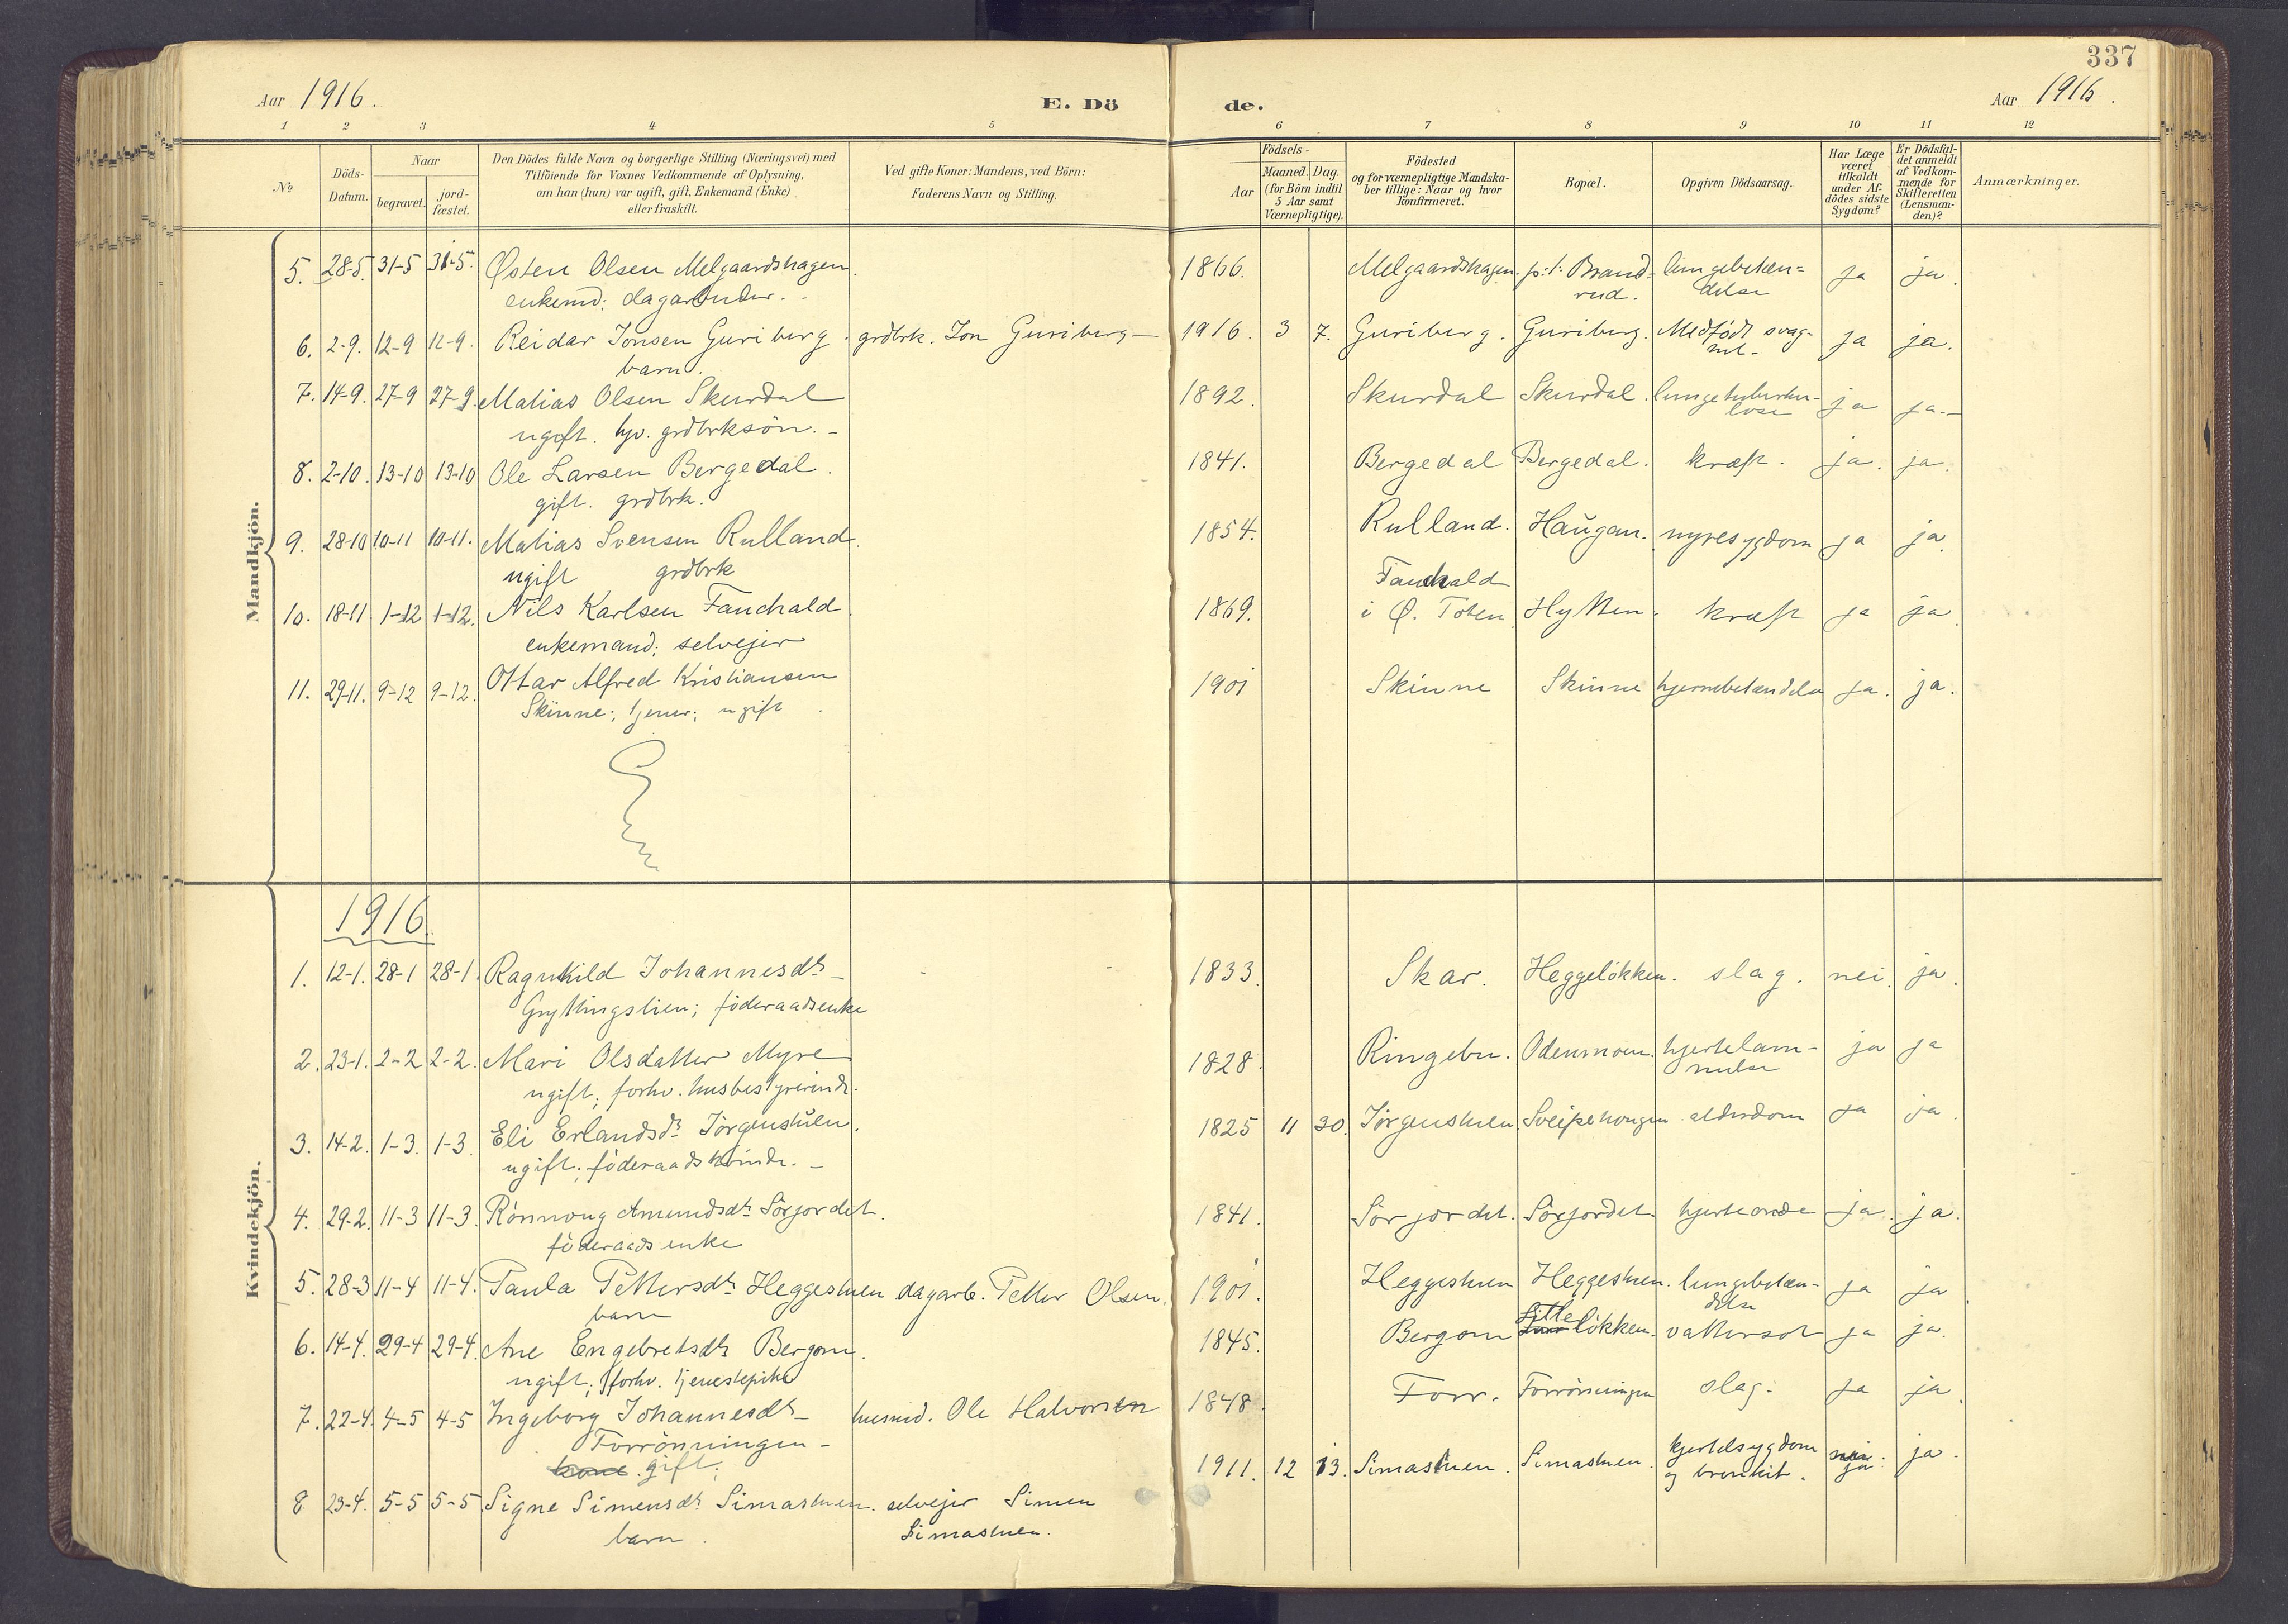 337
Aar 1916.
E. Dö
de.
Aar 1916.
1 2 3 4 5 6 7 8 9 10 11 12
№
Döds-
Datum.
Naar
begravet.
jord-
fæstet.
Den Dödes fulde Navn og borgerlige Stilling (Næringsvei) med
Tilföiende for Voxnes Vedkommende af Oplysning,
om han (hun) var ugift, gift, Enkemand (Enke)
eller fraskilt.
Ved gifte Koner: Mandens, ved Börn:
Faderens Navn og Stilling.
Födsels-
Aar
Maaned. Dag.
(for Börn indtil
5 Aar samt
Værnepligtige).
Födested
og for værnepligtige Mandska-
ber tillige: Naar og hvor
konfirmeret.
Bopæl.
Opgiven Dödsaarsag.
Har Læge
været
tilkaldt
under Af-
dödes sidste
Sygdom?
Er Dödsfal-
det anmeldt
af Vedkom-
mende for
Skifteretten
(Lensman-
den)?
Anmærkninger.
Mandkjön.
5. 28-5. 31-5 31-5. Østen Olsen Melgaardshagen. 1866. Melgaardshagen. p.t. Brand- lungebetæn- ja ja.
enkemd: dagarbeider. rud. delse
6. 2-9. 12-9 12-9. Reidar Jonsen Guriberg. grdbrk. Jon Guriberg 1916. 3 7. Guriberg. Guriberg. Medfödt svag- ja ja.
barn. het.
7. 14-9. 27-9 27-9. Matias Olsen Skurdal 1892. Skurdal Skurdal. lungetuberku- ja ja.
ugift. hjv. grdbrksön. lose
8. 2-10. 13-10 13-10 Ole Larsen Bergedal. 1841. Bergedal Bergedal. kræft. ja. ja.
gift. grdbrk.
9. 28-10 10-11 10-11. Matias Svensen Rulland. 1854. Rulland. Haugan. nyresygdom ja ja.
ugift grdbrk
Fauchald
10. 18-11 1-12 1-12. Nils Karlsen Fauchald 1869. i Ø. Toten Hytten. kræft ja ja.
enkemand; selvejer
11. 29-11. 9-12 9-12. Ottar Alfred Kristiansen 1901 Skinne Skinne hjernebetændelse ja. ja.
Skinne; tjener; ugift
Kvindekjön.
1916
1. 12-1. 28-1 28-1. Ragnhild Johannesdtr 1833. Skar. Heggelökken. slag. nei. ja.
Gryttingslien; föderaadsenke
2. 23-1. 2-2 2-2. Mari Olsdatter Myre 1828. Ringebu. Odenmoen. hjertelam- ja ja
ugift; forhv. husbestyrerinde. melse
3. 14-2. 1-3. 1-3. Eli Erlandsdr Jörgenstuen. 1825 11 30. Jörgenstuen Sveipehougen. alderdom ja ja.
ugift; föderaadskvinde.
4. 29-2. 11-3 11-3. Rönnoug Amundsdtr Sörjordet. 1841. Sörjordet. Sörjordet. hjerteonde ja. ja.
föderaadsenke
5. 28-3 11-4 11-4. Paula Pettersdtr Heggestuen dagarb. Petter Olsen. 1901. Heggestuen Heggestuen. lungebetæn- ja ja.
barn delse
6. 14-4. 29-4 29-4. Ane Engebretsdtr Bergom. 1845. Bergom Lille lökken. vattersot ja ja.
ugift; forhv. tjenestepike
7. 22-4. 4-5 4-5 Ingeborg Johannesdtr husmd. Ole Halvorsen 1848. Forr. Forrönningen slag. ja ja.
Forrönningen
kone. gift;
8 23-4. 5-5 5-5 Signe Simensdtr Simastuen. selvejer Simen 1911. 12 13. Simastuen. Simastuen. kjertelsygdom nei ja. ja.
barn. Simastuen. og bronkit.